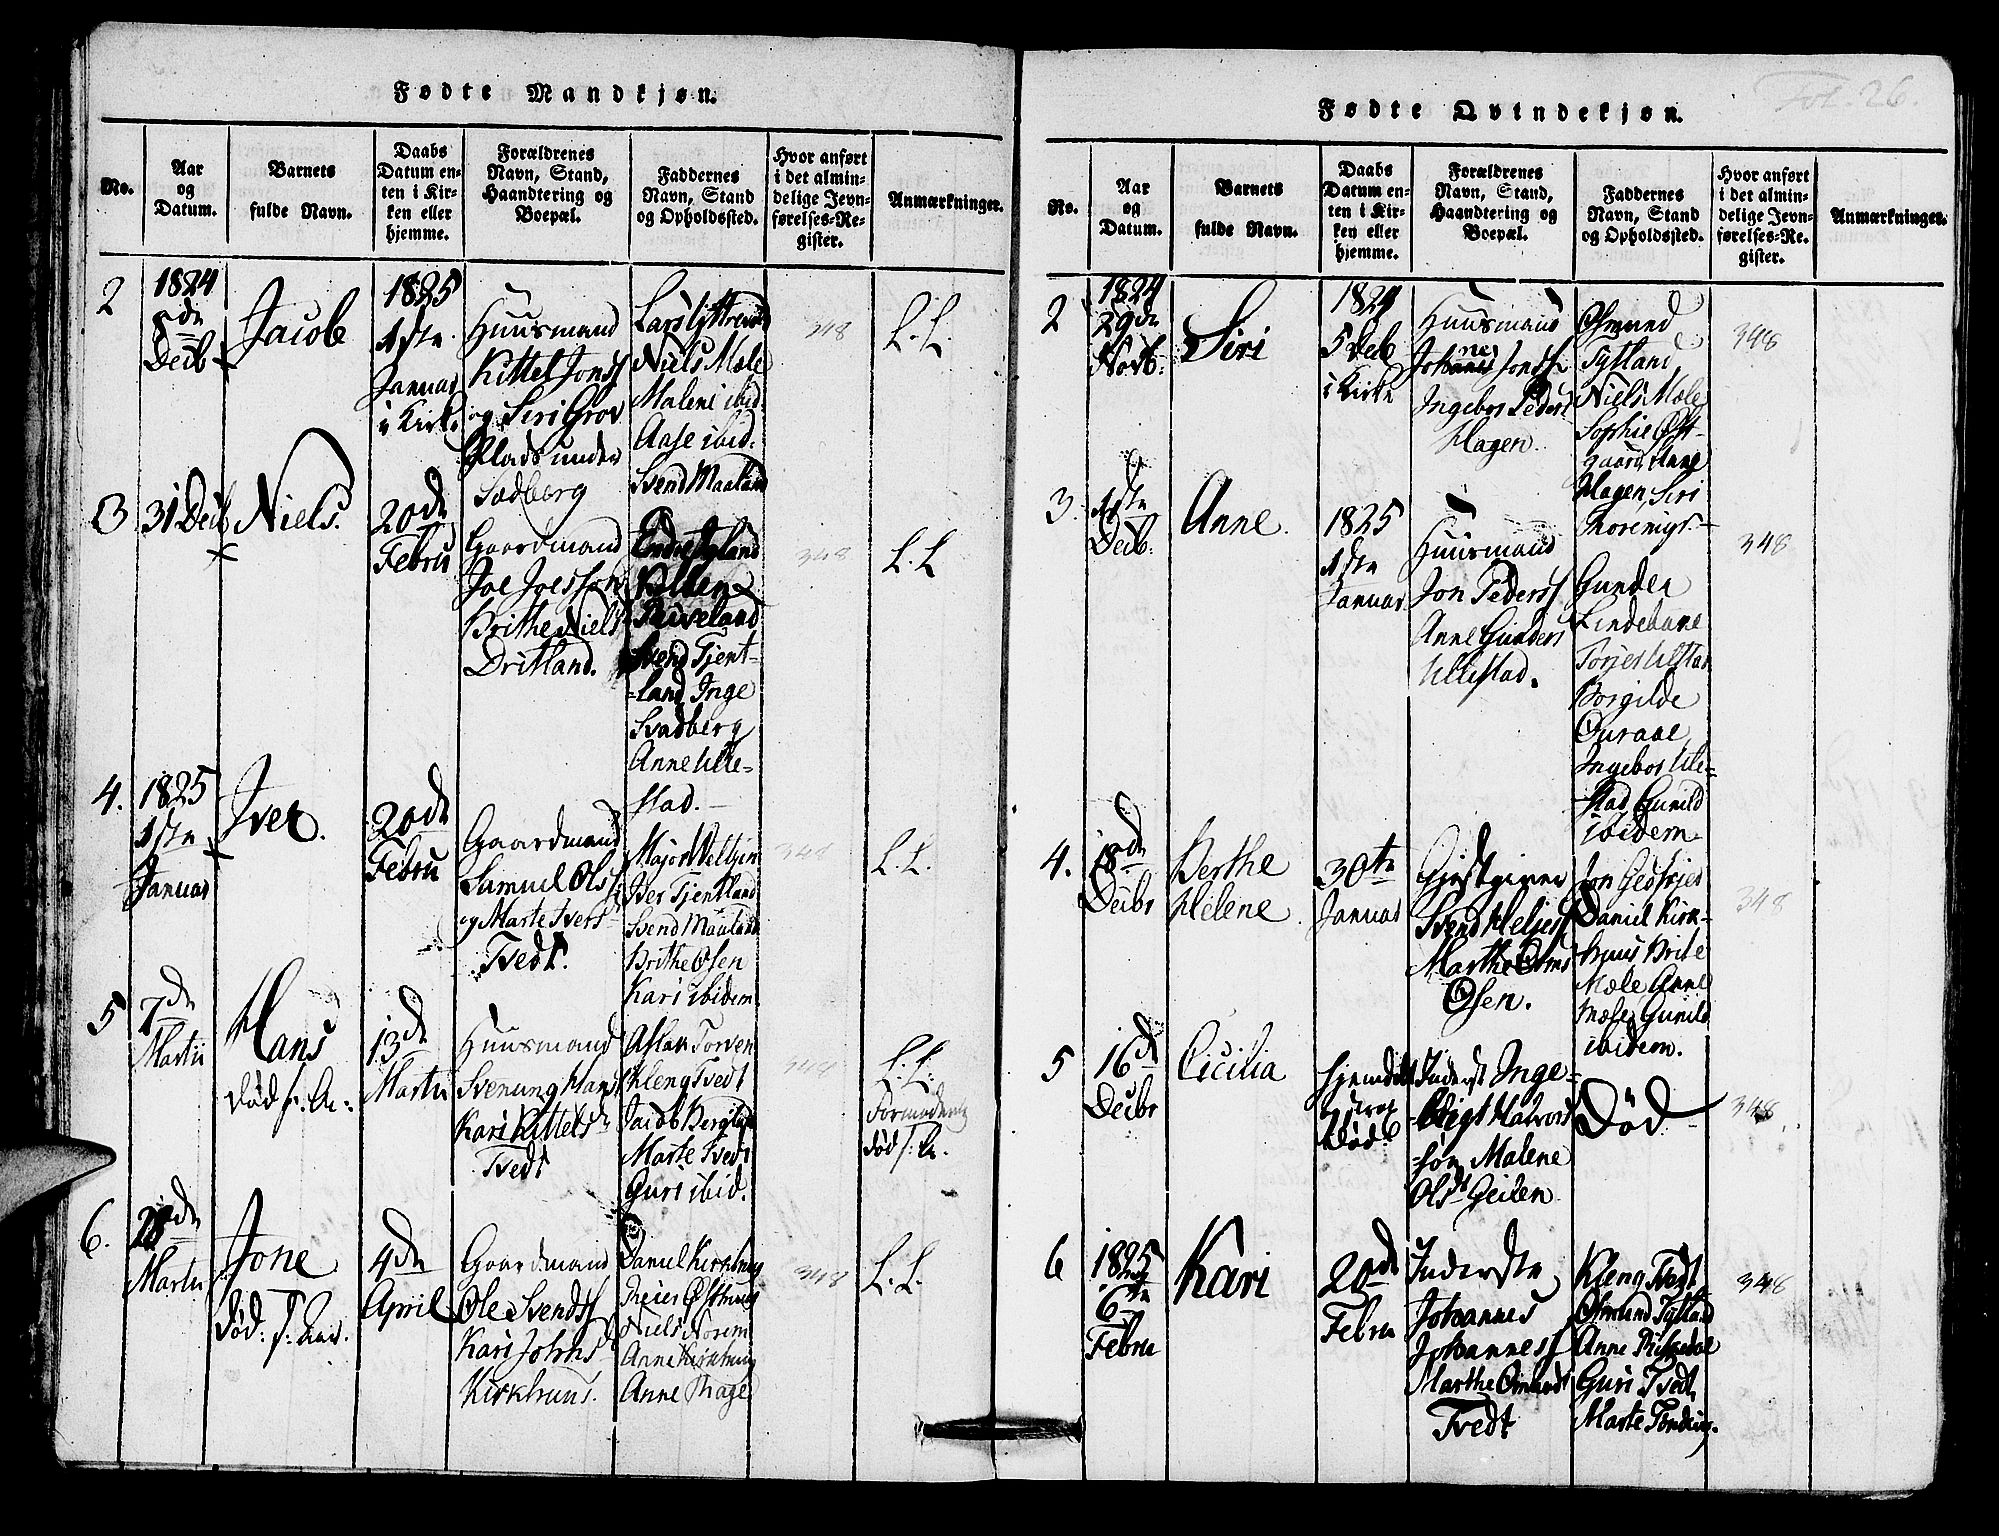 Fødte Mandkjøn.
No.
Aar
og
Datum.
Barnets
fulde Navn.
Daabs
Datum en-
ten i Kir-
ken eller
hjemme.
Forældrenes
Navn, Stand,
Haandtering og
Boepæl.
Faddernes
Navn, Stand
og Opholdssted.
Hvor anført
i det almin-
delige Jevn-
førelses-Re-
gister.
Anmærkninger.
2
1824
8de
Decb
Jacob
1825
1ste
Januar
i Kirk.
Huusmand
Kittel Jonss
og Siri Grov
Plads under
Sadberg
Niels Mæle
Maleni ibid:
Aase ibid:
Svend Maaland
348
L. L.
3
31 Decb
Niels.
20de
Febru
Gaardmand
Joe Joesson
Brithe Niels
Dritland.
Endre Tyland
Svend Tjent-
land Inge
Svadberg
Anne Ulle-
stad.
348
L. L
4.
1825
1ste
Januar
Iver.
20de
Febru
Gaardmand
Samuel Ols
og Marte Ivers
Tvedt.
Major
Iver Tjentland
Svend Maaland
Brithe Osen
Kari ibidem
348
L. L.
5
7de
Martii
Hans
død
13de
Martii
Huusmand
Svenung Hans
Kari Kittels
Tvedt
Aslak Torven
Kleng Tvedt
Jacob
Marte Tvedt
Guri ibid.
348
L. L.
død
6.
28de
Martii
Jone
død:
4de
April
Gaardmand
Ole Svends
Kari Johns
Kirkhuus.
Daniel Kirkhuus
Niels Norem
Anne Kirkhuus
Anne Hage
348
L. L.
Fol. 26.
Fødte Qvindekjøn.
No.
Aar
og
Datum.
Barnets
fulde Navn.
Daabs
Datum en-
ten i Kir-
ken eller
hjemme.
Forældrenes
Navn, Stand,
Haandtering og
Boepæl.
Faddernes
Navn, Stand
og Opholdssted.
Hvor anført
i det almin-
delige Jevn-
førelses-Re-
gister.
Anmærkninger.
2
1824
29de
Novb.
Siri
1824
5 Deb
i Kirke
Huusmand
Johannes Jonss
Ingebor Peders
Hagen.
Osmund
Tytland
Niels Mæle
Sophie Øst-
gaard Anne
Hagen, Siri
348
3.
1ste
Decb:
Anne
1825
1ste
Januar
Huusmand
Jon Pederss
Anne Gunders
Ullestad.
Gunder
Lindebane
Torjes Ulstad
Borgilde
Ouraae
Ingebor Ule-
stad Gunild
ibidem
348
4.
18de
Decbr
Berthe
Helene
30te
Januar
Gjestgiver
Svend Heljess
Marthe Orms
Osen.
Daniel Kirk-
huus Brite
Mæle Anne
Mæle Gunild
ibidem.
348
5
16de
Decbr
Cicilia
hjemdøbt
død
Inderst Inge-
brigt Halvors
-søn Malene
Olsd Geilen
Død
348
6
1825
6te
Febru
Kari
20de
Febru
Inderste
Johannes
Johanness
Marthe Osmunds
Tvedt
Kleng Tvedt
Osmund Tytland
Anne Riskedal
Guri Tvedt
Marte
348